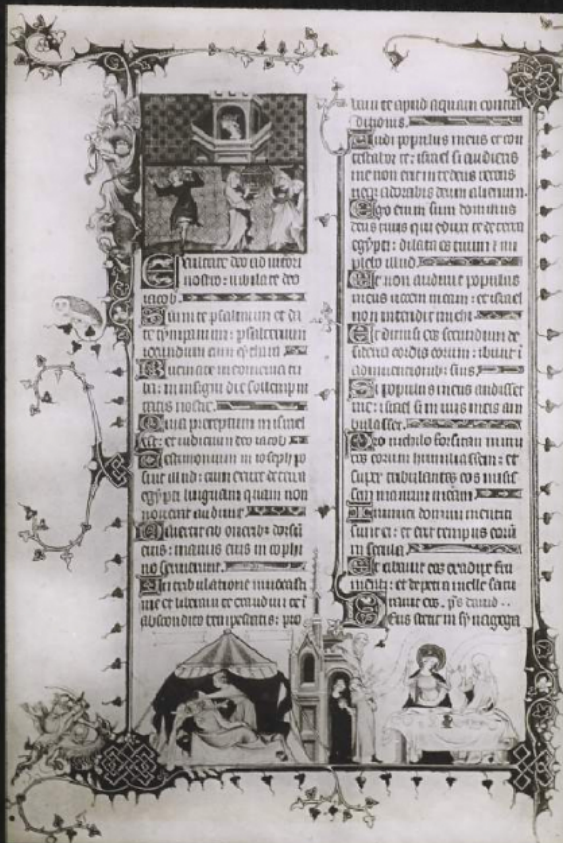 Exultate deo adiutori
nostro: iubilate deo
iacob.
Sumite psalmum et da
te tympanum: psalterium
iocundum cum cythara
Buccinate in neomenia tu
ba: in insigni die sollempni
tatis nostre.
Quia preceptum in israel
est: et iudicium deo iacob
Testimonium in ioseph po
suit illud: cum exiret de terra
egypti linguam quam non
noverat audivit
Divertit ab oneribȝ dorsū
eius: manus eius in cophi
no servierunt.
In tribulatione invocasti
me et liberavi te exaudivi te ī
abscondito tempestatis: pro
bavi te apud aquam contra
dictionis.
Audi populus meus et con
testabor te: israel si audieris
me non erit in te deus recens
neqȝ adorabis deum alienum.
Ego enim sum dominus
deus tuus qui eduxi te de terra
egypti: dilata os tuum ⁊ im
plebo illud.
Et non audivit populus
meus vocem meam: et israel
non intendit michi
Et dimisi eos secundum de
sideria cordis eorum: ibunt ī
adinventionibȝ suis
Si populus meus audisset
me: israel si in viis meis am
bulasset.
Pro nichilo forsitan inimi
cos eorum humiliassem: et
super tribulantes eos misis
sem manum meam
Inimici domini mentiti
sunt ei: et erit tempus eorū
in secula
Et cibavit eos ex adipe fru
menti: et de petra melle satu
ravit eos. p̄s david..
Deus stetit in synagoga